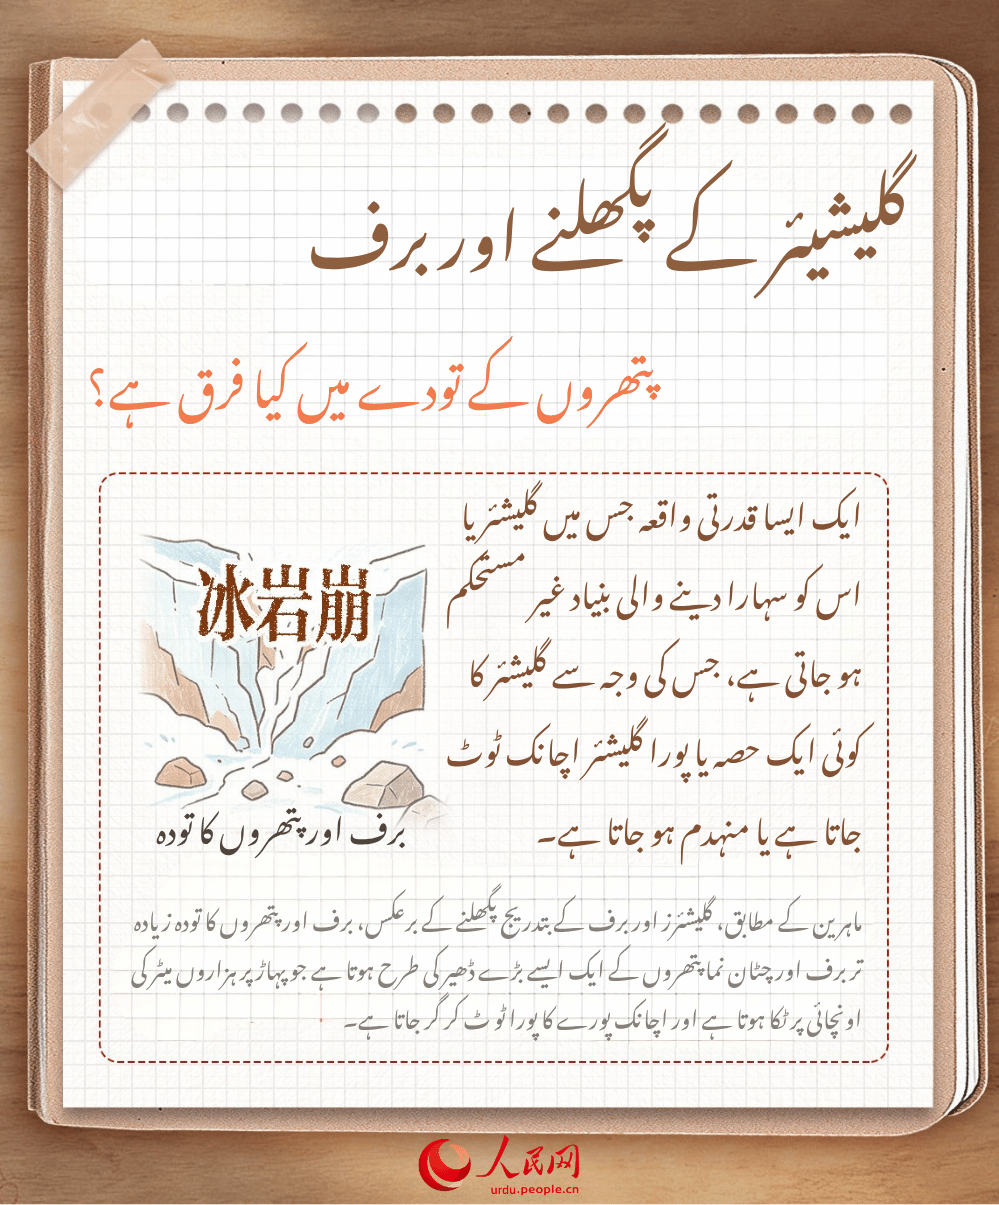 گلیشیئر کے پگھلنے اور برف
پتھروں کے تودے میں کیا فرق ہے؟
ایک ایسا قدرتی واقعہ جس میں گلیشئر یا
اس کو سہارا دینے والی بنیاد غیر مستحکم
ہو جاتی ہے، جس کی وجہ سے گلیشئر کا
کوئی ایک حصہ یا پورا گلیشئر اچانک ٹوٹ
جاتا ہے یا منہدم ہو جاتا ہے۔
冰岩崩
برف اور پتھروں کا تودہ
ماہرین کے مطابق، گلیشئرز اور برف کے بتدریج پگھلنے کے برعکس، برف اور پتھروں کا تودہ زیادہ
تر برف اور چٹان نما پتھروں کے ایک ایسے بڑے ڈھیر کی طرح ہوتا ہے جو پہاڑ پر ہزاروں میٹر کی
اونچائی پر ٹکا ہوتا ہے اور اچانک پورے کا پورا ٹوٹ کر گر جاتا ہے۔
人民网
urdu.people.cn